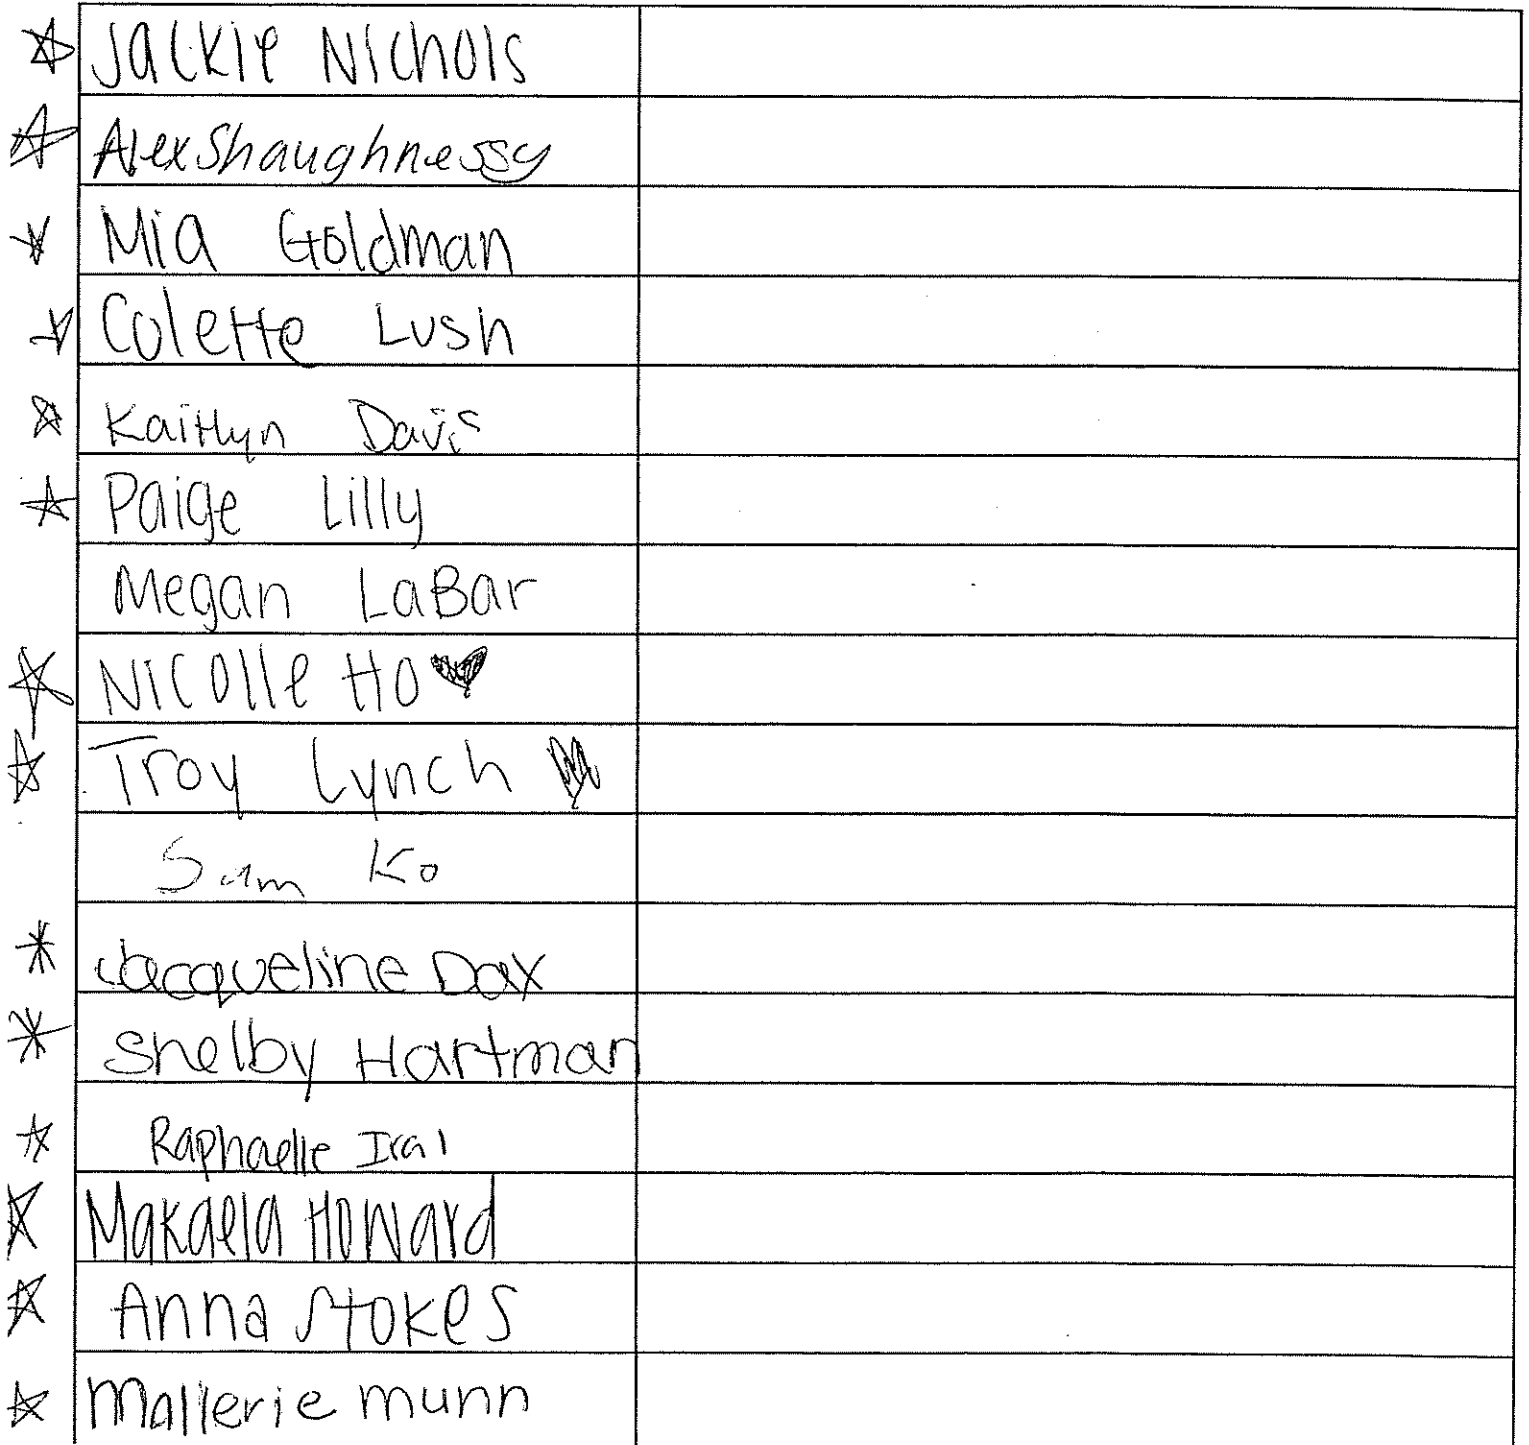 Jackie Nichols
Alex Shaughnessy
Mia Goldman
Colette Lush
Kaitlyn Davis
Paige Lilly
Megan LaBar
Nicolle Ho
Troy Lynch
Sam Ko
Jacqueline Dax
Shelby Hartman
Raphaelle Iral
Makaela Howard
Anna Stokes
Mallerie Munn